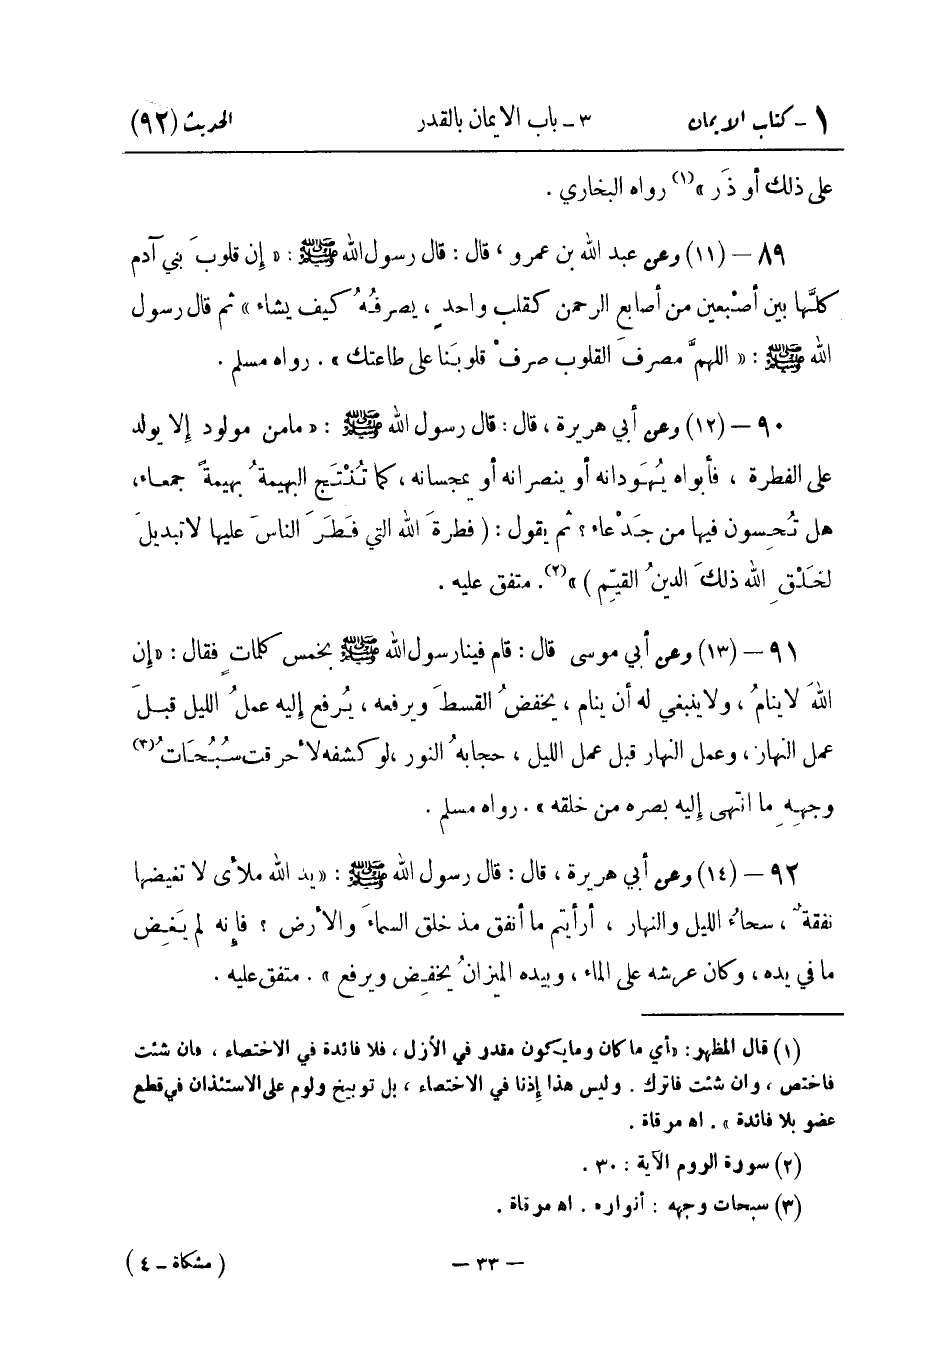 ١ - كتاب الايمان ٣ - باب الايمان بالقدر الحديث (٩٢)
على ذلك أو ذَر »(١) رواه البخاري .
٨٩ — (١١) وعن عبد الله بن عمرو ، قال : قال رسول الله ﷺ : « إن قلوبَ بني آدم
كلَّها بين أصْبعين من أصابع الرحمن كقلب واحدٍ ، يصرفُهُ كيف يشاء » ثم قال رسول
الله ﷺ : « اللهمَّ مصرفَ القلوب صرفْ قلوبَنا على طاعتك » . رواه مسلم .
٩٠ — (١٢) وعن أبي هريرة ، قال : قال رسول الله ﷺ : « مامن مولود إلا يولد
على الفطرة ، فأبواه يُهَودانه أو ينصرانه أو يمجسانه ، كما تُنْتَج البهيمةُ بهيمةً جمعاء،
هل تُحِسون فيها من جَدْعاء ؟ ثم يقول : ( فطرةَ الله التي فَطَرَ الناسَ عليها لاتبديلَ
لخَلْقِ الله ذلكَ الدينُ القيِّم ) »(٢). متفق عليه .
٩١ — (١٣) وعن أبي موسى قال : قام فينارسول الله ﷺ بخمس كلماتٍ فقال : « إن
اللهَ لاينامُ ، ولاينبغي له أن ينام ، يخفضُ القسطَ ويرفعه ، يُرفع إليه عملُ الليل قبلَ
عمل النهار ، وعمل النهار قبل عمل الليل ، حجابهُ النور ،لو كشفه لأحرقت سُبُحَاتُ(٣)
وجهِهِ ما انتهى إليه بصره من خلقه » . رواه مسلم .
٩٢ — (١٤) وعن أبي هريرة ، قال : قال رسول الله ﷺ : « يد الله ملأى لا تغيضها
نفقةٌ ، سحاءُ الليل والنهار ، أرأيتم ما أنفق مذ خلق السماءَ والأرض ؟ فإنه لم يَغِض
ما في يده ، وكان عرشه على الماء ، وبيده الميزانُ يخفِض ويرفع » . متفق عليه .
(١) قال المظهر : « أي ما كان ومايكون مقدر في الأزل ، فلا فائدة في الاختصاء ، فان شئت
فاختص ، وان شئت فاترك . وليس هذا إذنا في الاختصاء ، بل توبيخ ولوم على الاستئذان في قطع
عضو بلا فائدة » . اه مرقاة .
(٢) سورة الروم الآية : ٣٠ .
(٣) سبحات وجهه : أنواره . اه مرقاة .
— ٣٣ — ( مشكاة - ٤ )